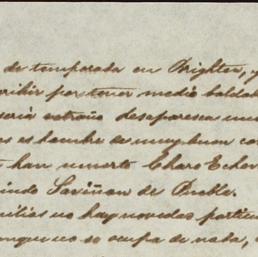 de temporada en Brighton, y
cribir por tener medio baldad
seria extraño desaparezca
es hombre de muy buen con
han muerto Charo Echev
lindo Saviñon de Puebla.
milias no hay novedad particu
unque no se ocupa de nada,